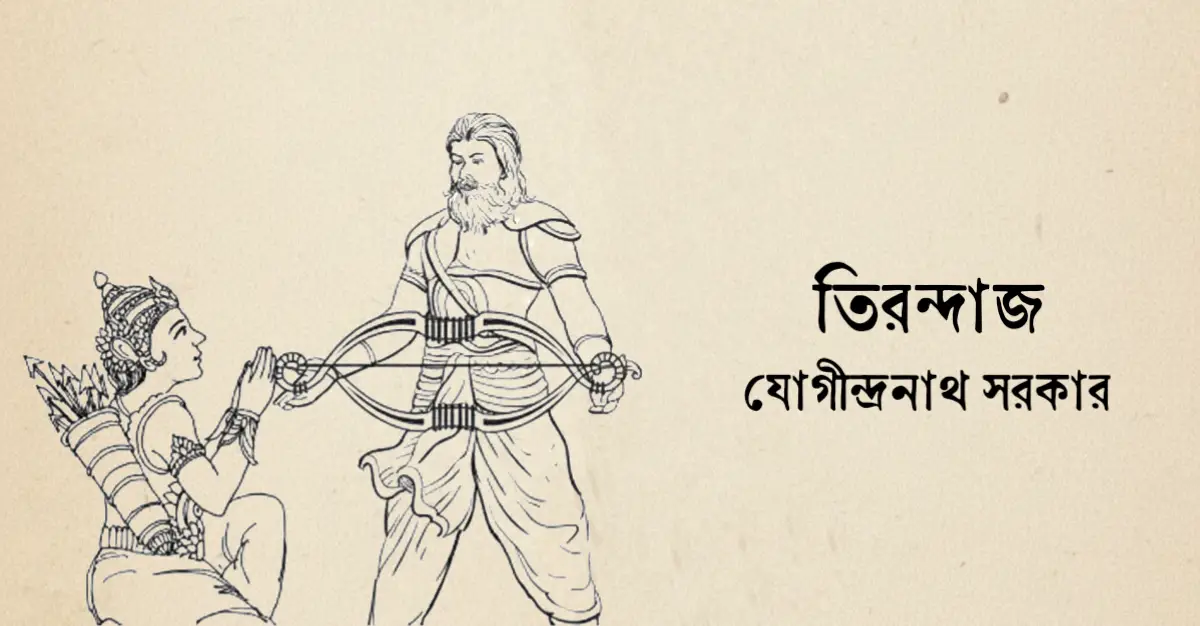 তিরন্দাজ
যোগীন্দ্রনাথ সরকার